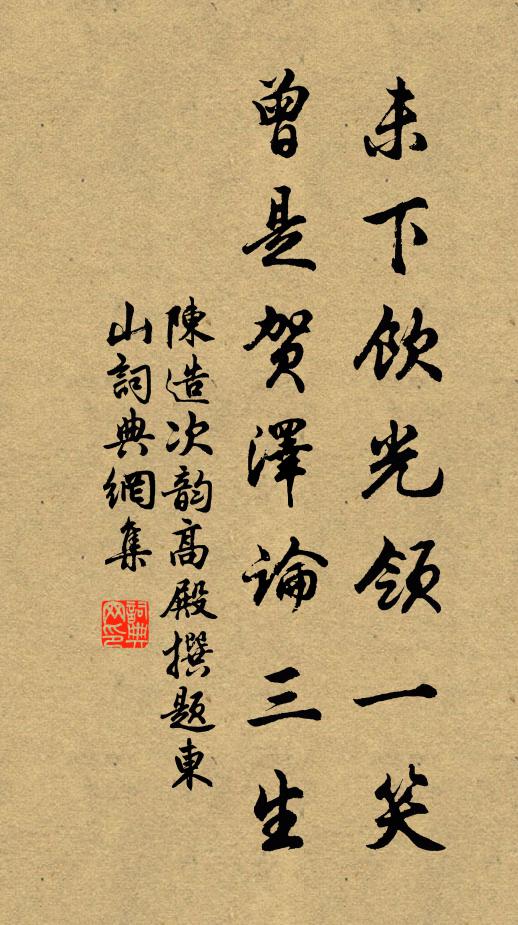 未下飲光領一笑
曾是賀澤論三生
陳造次韵高殿撰題東
山詞典網集
詞典
网印